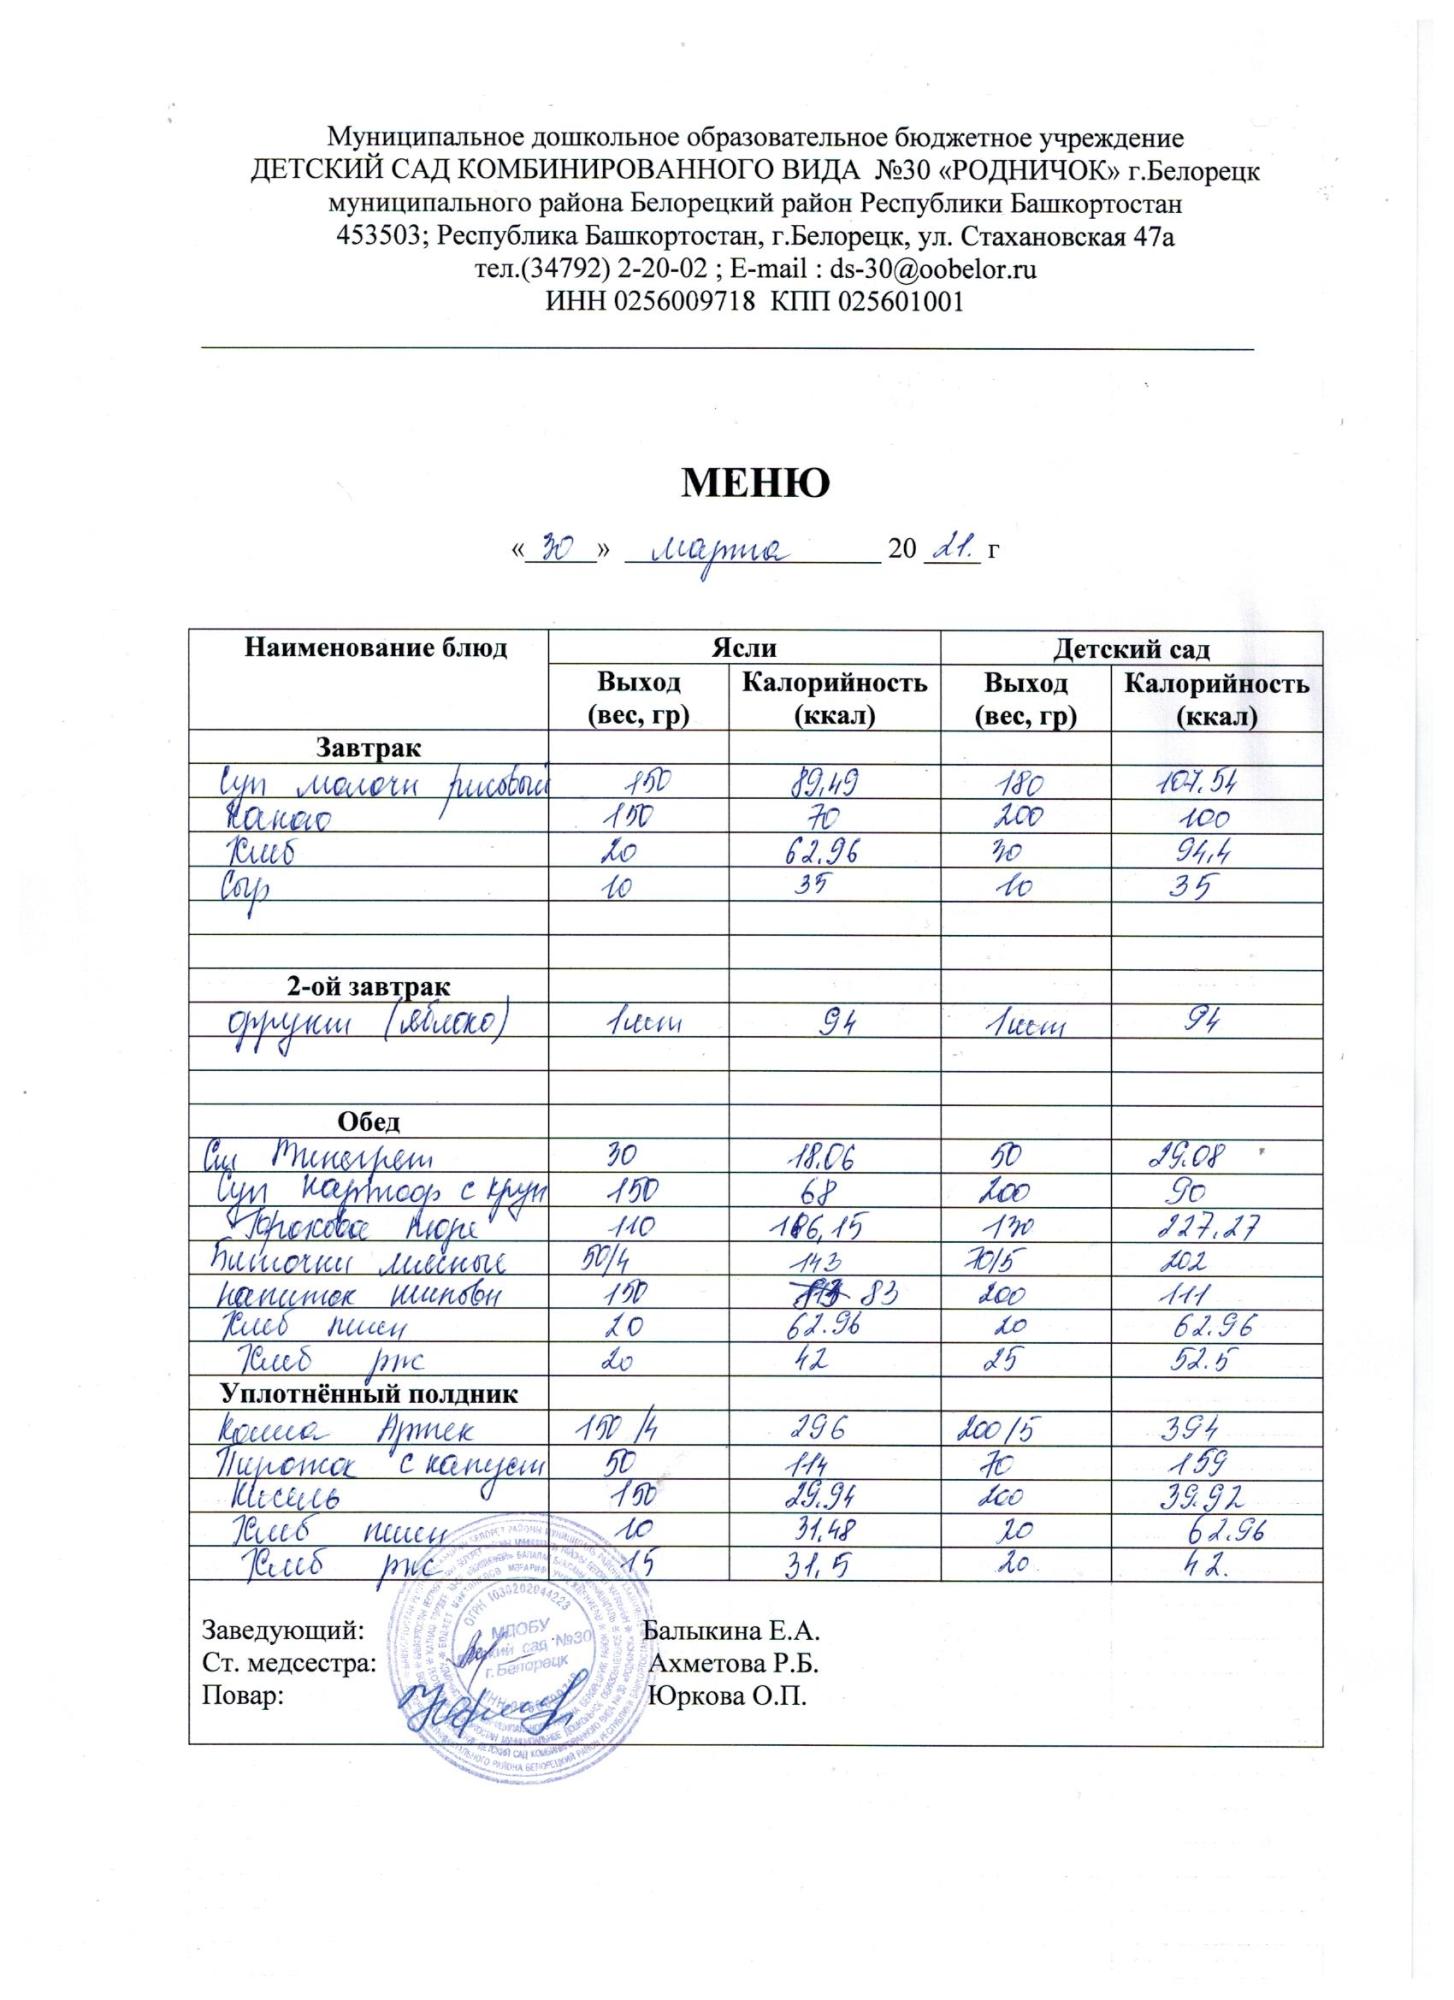 Муниципальное дошкольное образовательное бюджетное учреждение
ДЕТСКИЙ САД КОМБИНИРОВАННОГО ВИДА №30 «РОДНИЧОК» г.Белорецк
муниципального района Белорецкий район Республики Башкортостан
453503; Республика Башкортостан, г.Белорецк, ул. Стахановская 47а
тел.(34792) 2-20-02 ; E-mail : ds-30@oobelor.ru
ИНН 0256009718 КПП 025601001
МЕНЮ
«30» марта 2021. г
Наименование блюд Ясли Детский сад
Выход (вес, гр) Калорийность (ккал) Выход (вес, гр) Калорийность (ккал)
Завтрак
Суп молочн рисовый 150 89,49 180 107.54
Какао 150 70 200 100
Хлеб 20 62.96 30 94,4
Сыр 10 35 10 35
2-ой завтрак
фрукт (яблоко) 1шт 94 1шт 94
Обед
Винегрет 30 18.06 50 29.08
Суп картоф с круп 150 68 200 90
Горохова пюре 110 130 227.27
Биточки мясные 50/4 143 70/5 202
напиток шиповн 150 83 200 111
Хлеб пшен 20 62.96 20 62.96
Хлеб рж 20 42 25 52.5
Уплотнённый полдник
Каша Артек 150/4 296 200/5 394
Пирожок с капуст 50 114 70 159
Кисель 150 29.94 200 39.92
Хлеб пшен 10 31,48 20 62.96
Хлеб рж 15 31,5 20 42.
Заведующий: Балыкина Е.А.
Ст. медсестра: Ахметова Р.Б.
Повар: Юркова О.П.
ОГРН 1030202044223
МДОБУ
сад №30
г.Белорецк